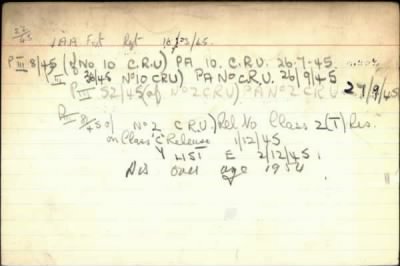 22/45
1AA Fut Rgt 18/03/45.
P III 8/45 (of No 10 C.R.U) PA 10. C.R.U. 26-7-45.
II 38/45 No 10 CRU) PA No C.R.U. 26/9/45
P III 52/45 (of No 2 CRU) PA No 2 CRU 27/9/45
of No 2 C R.U) Rel No Class 2(T) Res.
on Class "C" Release 1/12/45
Y LIST E 2/12/45.
Dis over age 1954
II